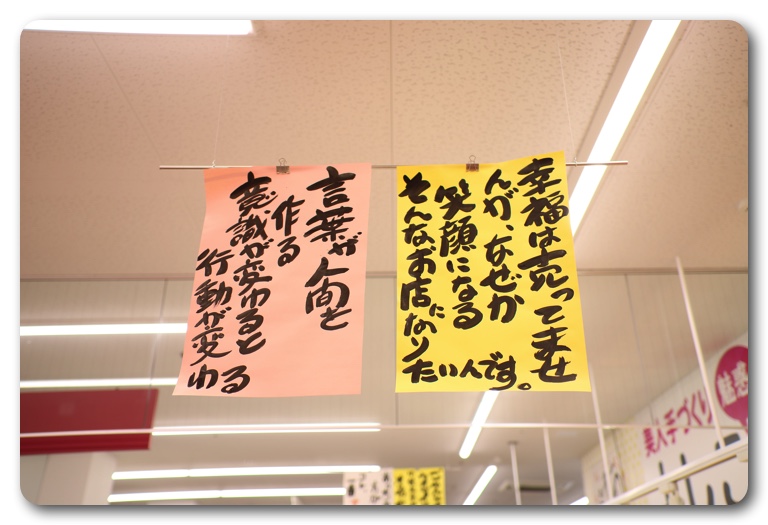 幸福は売ってませ
んが、なぜか
笑顔になる
そんなお店になり
たいんです。
言葉が人間を
作る
意識が変わると
行動が変
わる
美人手づくり
魅惑